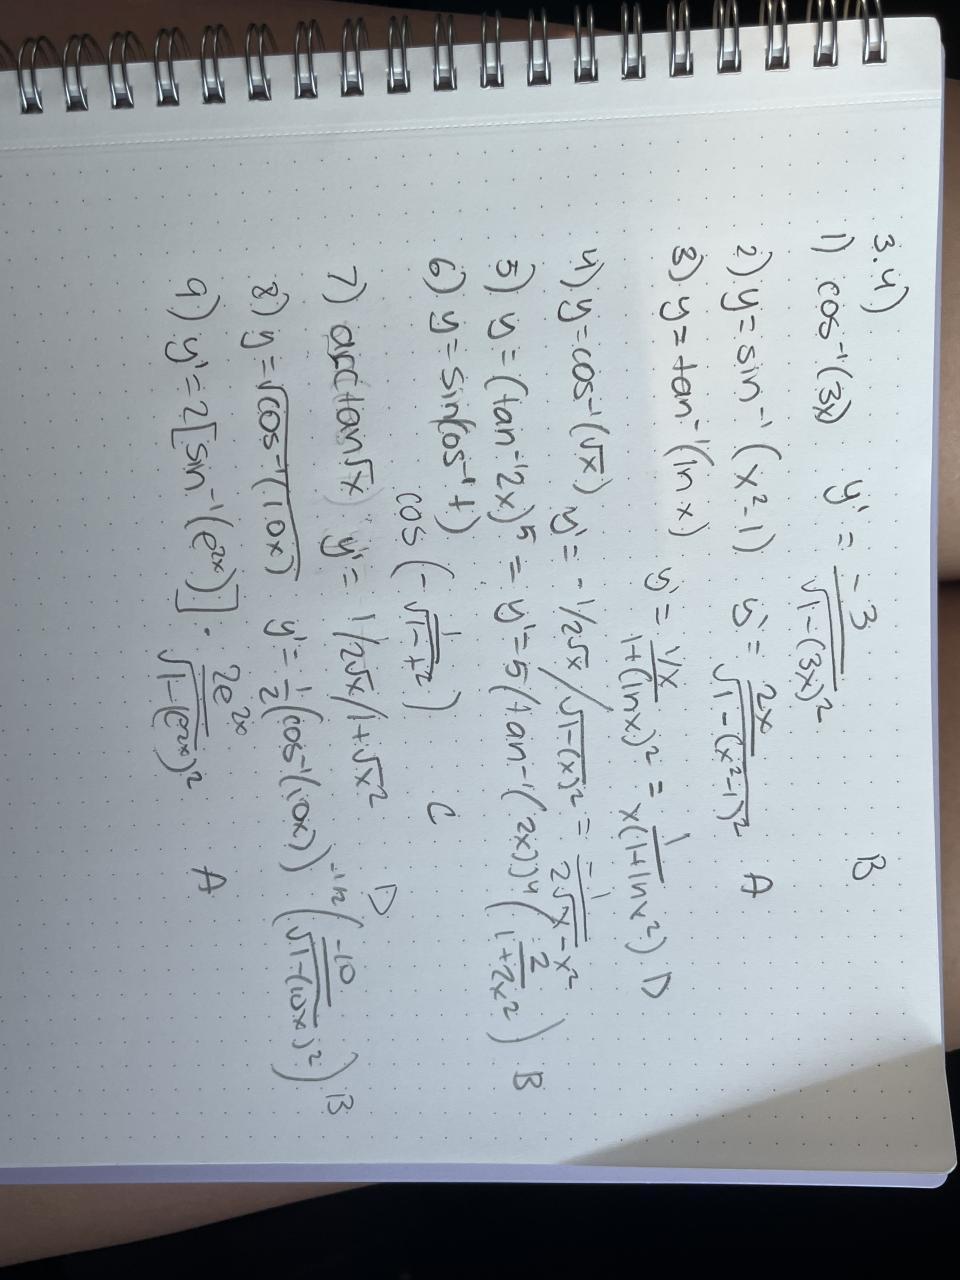 3.4)
1) cos⁻¹(3x) y' = -3/√(1-(3x)²) B
2) y = sin⁻¹(x²-1) y' = 2x/√(1-(x²-1)²) A
3) y = tan⁻¹(ln x) y' = (1/x)/(1+(ln x)²) = 1/(x(1+ln x²)) D
4) y = cos⁻¹(√x) y' = -1/2√x/√(1-(x)²) = -1/(2√x-x²)
5) y = (tan⁻¹2x)⁵ = y' = 5(tan⁻¹(2x))⁴(2/(1+2x²)) B
6) y = sin(cos⁻¹t)
cos(-1/√(1-t²)) C
7) arctan√x y' = 1/2√x/1+√x² D
8) y = √(cos⁻¹(10x)) y' = 1/2(cos⁻¹(10x))^(-1/2)(-10/√(1-(10x)²)) B
9) y' = 2[sin⁻¹(e²ˣ)] · 2e²ˣ/√(1-(e²ˣ)²) A